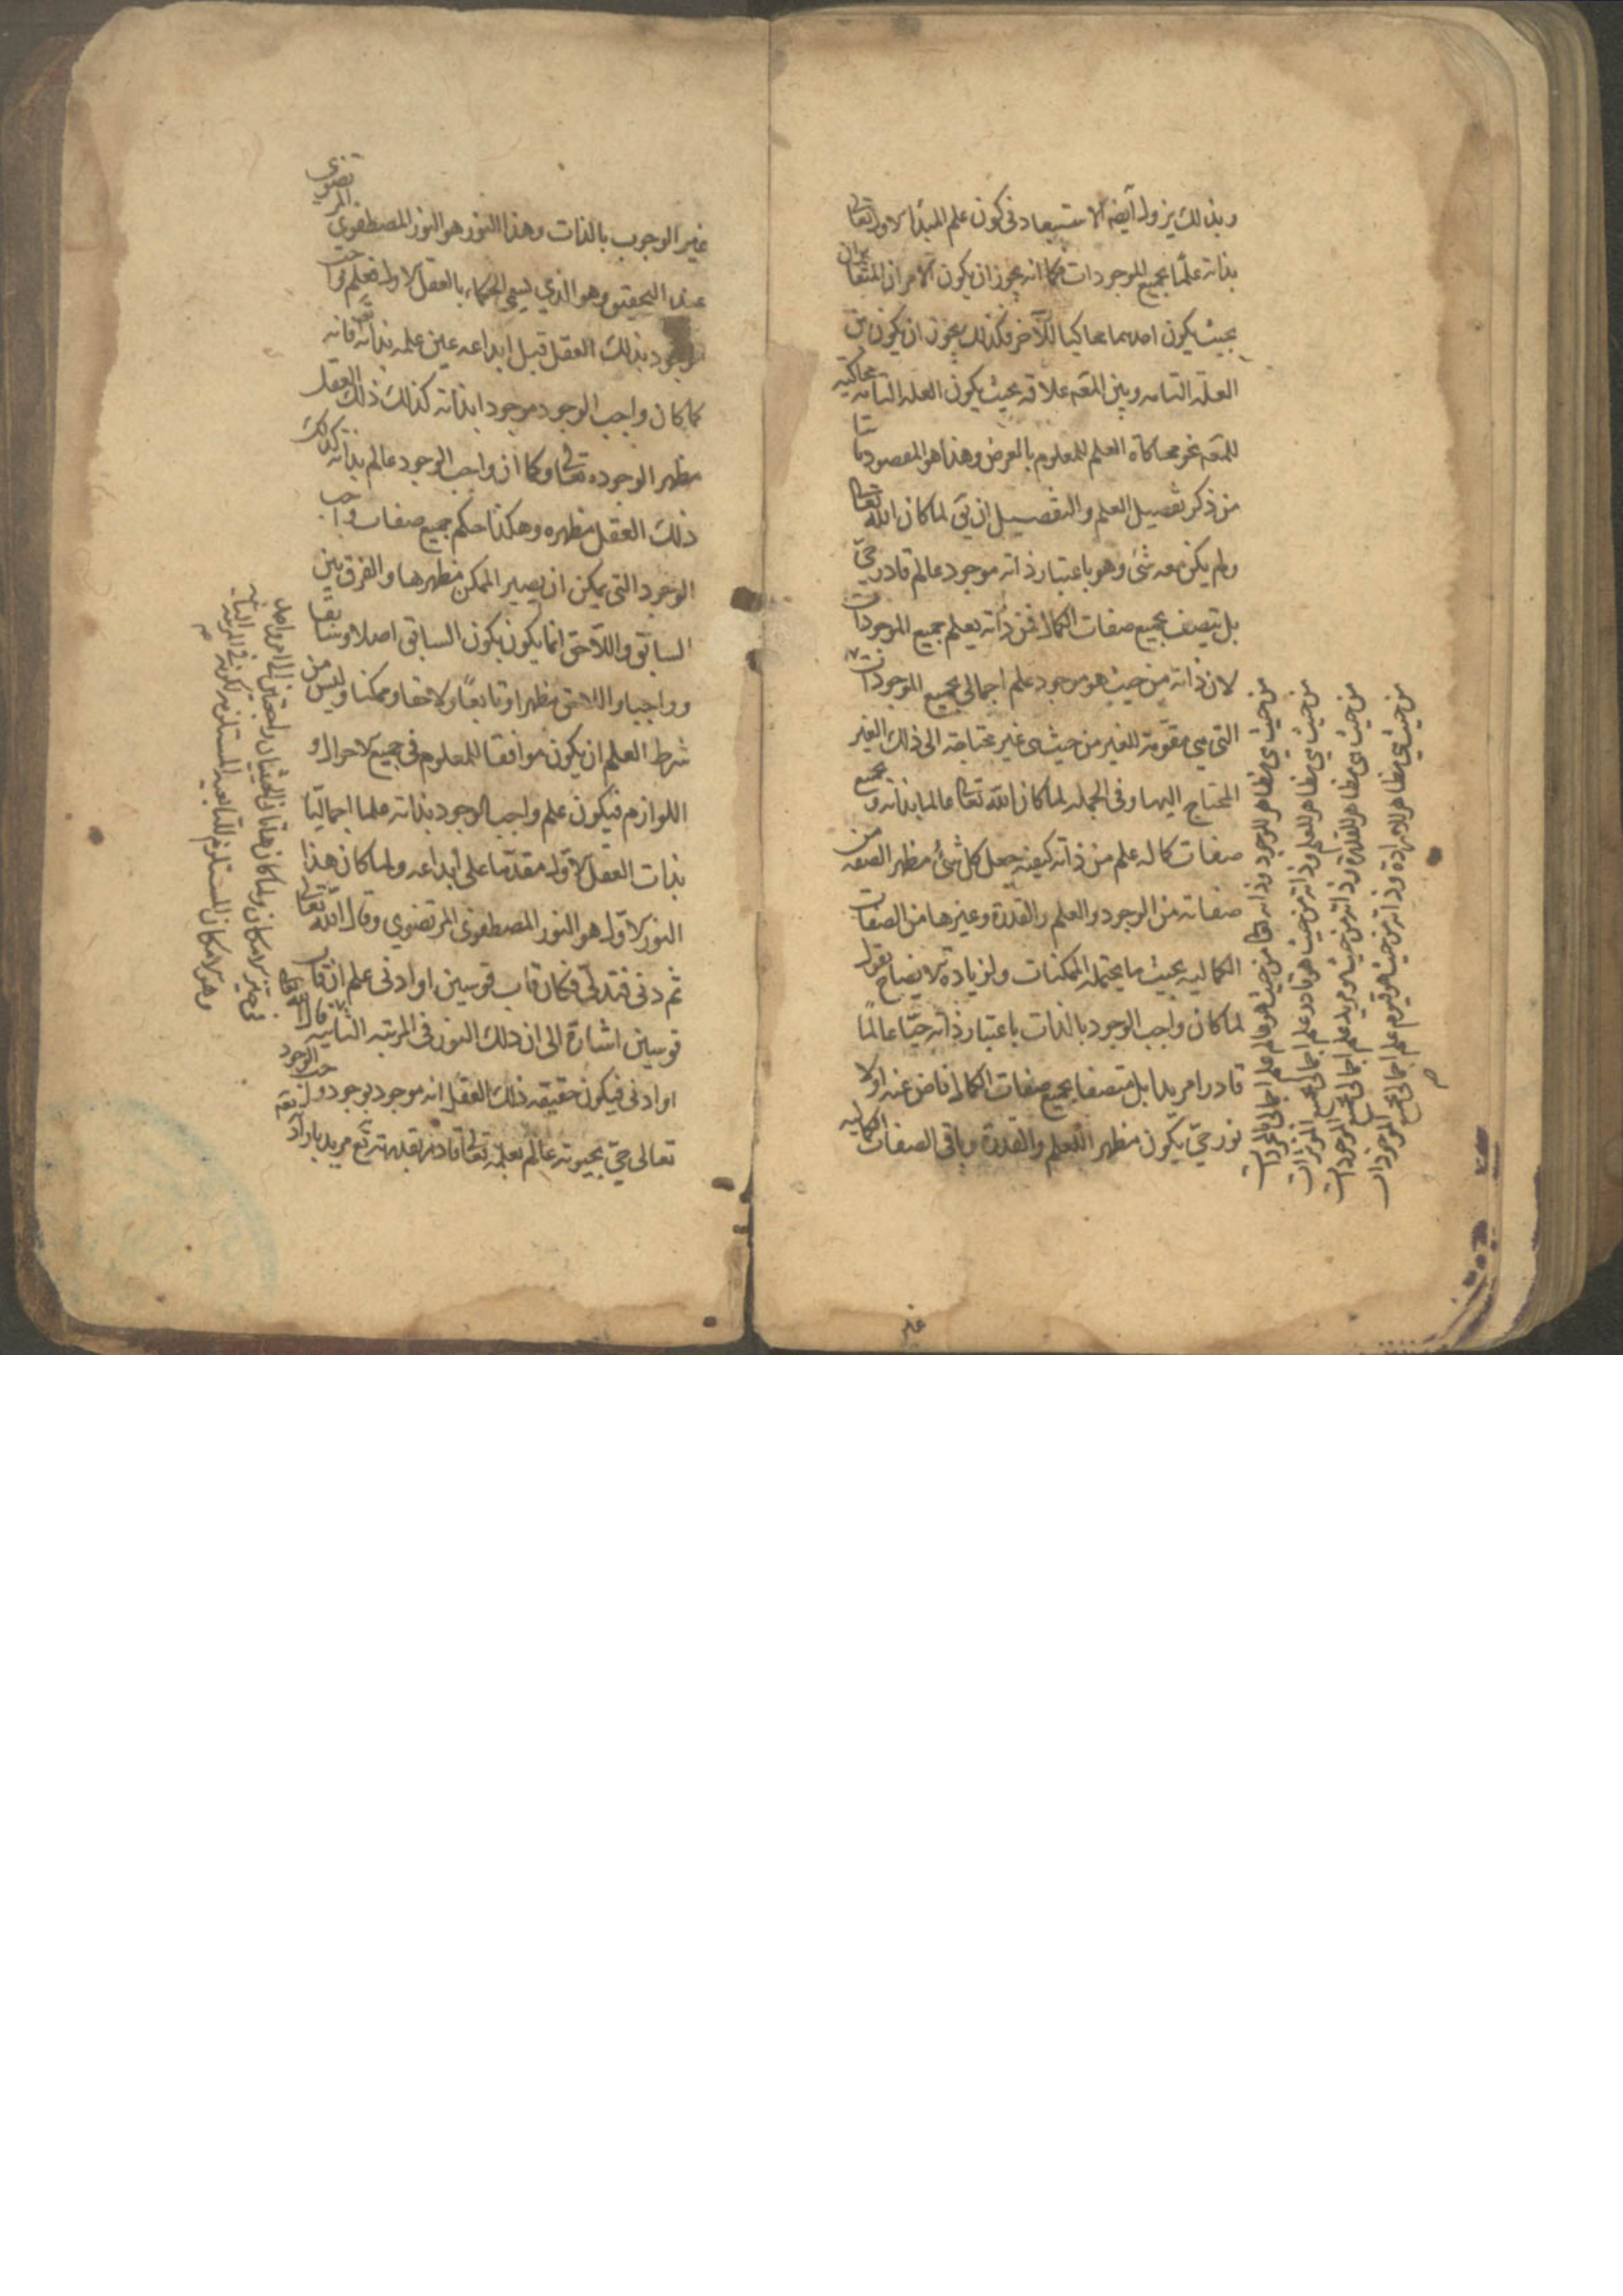 وبذالك يزول أيضا الاستبعاد فى كون علم المبدأ الاول تعالى
بذاته علما بجميع الموجودات فكما انه يجوز ان يكون الامران المتغايران
بحيث يكون احدهما محاكيا للآخر فكذلك يجوز ان يكون بين
العلة التامه وبين المعه علاقه بحيث يكون العلة التامه محاكية
للمعه نحو محاكاة العلم للمعلوم بالعرض وهذا هو المقصود
من ذكر تفصيل العلم والتفصيل ان يق لما كان الله تعالى
ولم يكن معه شئ وهو باعتبار ذاته موجود عالم قادر حيّ
بل يتصف بجميع صفات الكمال فمن ذاته يعلم جميع الموجودات
لان ذاته من حيث هو موجود علم اجمالى بجميع الموجودات
التى هى مقومة للغير من حيث هى غير محتاجة الى ذلك الغير
المحتاج اليها وفى الجمله لما كان الله تعالى عالما بذاته وجميع
صفات كماله علم من ذاته كيفيه جعل كل شئ مظهر الصفه من
صفاته من الوجود والعلم والقدرة وغيرها من الصفات
الكماليه بحيث ما يحتمله الممكنات ولزيادة الايضاح نقول
لما كان واجب الوجود بالذات باعتبار ذاته حيّا عالمًا
قادرا مريدا بل متصفا بجميع صفات الكمال فاض عنه اولا
نور حيّ يكون مظهر العلم والقدرة وباقى الصفات الكماليه
من حيث هى مظاهر للوجود وذاته تعالى من حيث هو عالم علم اجمالى
من حيث هى مظاهر للعلم وذاته من حيث هو قادر علم اجمالى بجميع
من حيث هى مظاهر للقدرة وذاته من حيث هو مريد علم اجمالى بجميع الموجودات
من حيث هى مظاهر للارادة وذاته من حيث هو قيوم علم اجمالى بجميع الموجودات
غير
غير الوجوب بالذات وهذا النور هو النور المصطفوي المرتضوى
عند التحقيق وهو الذي يسمى الحكماء بالعقل الاول فعلم واجب
الوجود بذلك العقل قبل ابداعه عين علمه بذاته فانه
كما كان واجب الوجود موجودا بذاته كذلك ذلك العقل
مظهر الوجوده تعالى وكما ان واجب الوجود عالم بذاته كذلك
ذلك العقل مظهره وهكذا حكم جميع صفات واجب
الوجود التى يمكن ان يصير الممكن مظهرها والفرق بين
السابق واللاحق انما يكون بكون السابق اصلا وسابقا
وواجبا واللاحق مظهرا وتابعًا ولاحقا وممكنا وليس من
شرط العلم ان يكون موافقا للمعلوم فى جميع الاحوال و
اللوازم فيكون علم واجب الوجود بذاته علما اجماليًا
بذات العقل الاول مقدّما على ابداعه ولما كان هذا
النور الاول هو النور المصطفوى المرتضوي وقال الله تعالى
ثم دنى فتدلّى فكان قاب قوسين او ادنى علم ان قاب
قوسين اشارة الى ان ذلك النور فى المرتبه الثانيه قال الله تعالى
او ادنى فيكون حقيقه ذلك العقل انه موجود بوجود واجب الوجود
تعالى حيّ بحيوته عالم بعلمه تعالى قادر بقدرته تع مريد بارادته